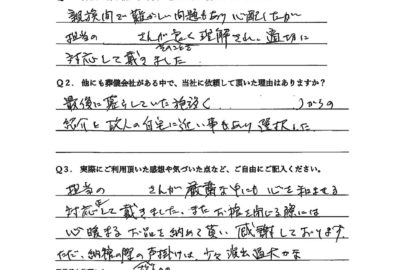 親族間で難しい問題もあり心配したが
担当の さんが良く理解され、適切に
そのことを
対応して戴きました
Q2. 他にも葬儀会社がある中で、当社に依頼して頂いた理由はありますか?
最後に暮らしていた施設( )からの
紹介と故人の自宅に近い事もあり選択した
Q3. 実際にご利用頂いた感想や気づいた点など、ご自由にご記入ください。
担当の さんが厳粛な中にも心を和ませる
対応して戴きました、また お棺を閉じる際には
心暖まる お品を納めて貰い 感謝しております
ただ、納棺の際の声掛けは、少々演出過大かな